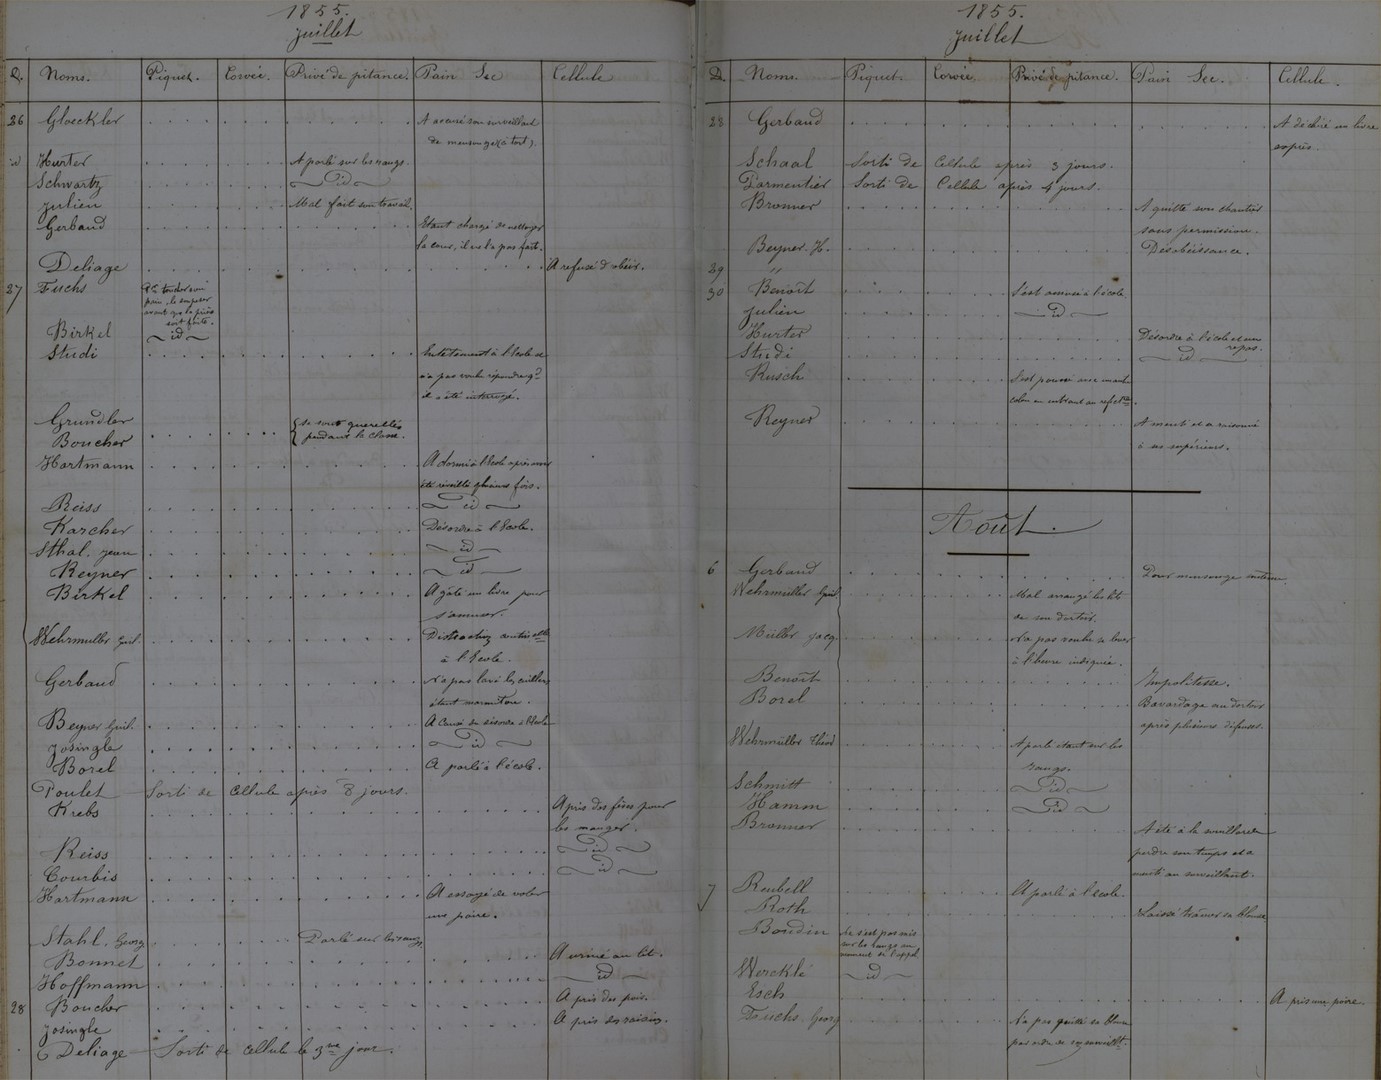 1855.
Juillet
D. Noms. Piquet. Corvée. Privé de pitance. Pain Sec Cellule
26 Gloeckler A accusé son surveillant
de mensonge (à tort).
id Hurter A parlé sur les rangs.
Schwartz id
Julien Mal fait son travail.
Gerbaud Etant chargé de nettoyer
la cour, il ne l'a pas faite.
Deliage A refusé d'obéir.
27 Fuchs
pain, le
avant que la prière
soit faite.
Birkel id
Studi Entêtement à l'école et
n'a pas voulu répondre qd
il a été interrogé.
Grundler se sont querellés
Boucher pendant la classe.
Hartmann A dormi à l'école après avoir
été réveillé plusieurs fois.
Reiss id
Karcher Désordre à l'école.
Sthal. Jean id
Reyner id
Birkel A gâté un livre pour
s'amuser.
Wehrmuller Guil.
à l'école.
Gerbaud N'a pas lavé les cuillers
étant marmiton.
Beyner Guil. A causé du désordre à l'école
Josingle id
Borel A parlé à l'école.
Poulet Sorti de Cellule après 8 jours.
Krebs A pris des fèves pour
les manger.
Reiss id
Courbis id
Hartmann A essayé de voler
une poire.
Stahl. Georg Parlé sur les rangs.
Bonnet A uriné au lit.
Hoffmann id
28 Boucher A pris des pois.
Josingle A pris des raisins.
Deliage Sorti de cellule le 3me jour.
1855.
Juillet
D. Noms. Piquet. Corvée. Privé de pitance. Pain Sec. Cellule.
28 Gerbaud A déchiré un livre
exprès.
Schaal Sorti de Cellule après 3 jours.
Parmentier Sorti de Cellule après 4 jours.
Bronner A quitté son chantier
sans permission.
Beyner. H. Désobéissance.
29 "
30 Benoît S'est amusé à l'école
Julien id
Hurter Désordre à l'école et au
repas.
Studi id
Rusch S'est poussé avec un autre
colon en entrant au réfectre.
Reyner A menti et a raisonné
à ses supérieurs.
Août.
6 Gerbaud Pour mensonge
Wehrmüller Guil Mal arrangé les lits
de son dortoir.
Müller Jacq N'a pas voulu se lever
à l'heure indiquée.
Benoît Impolitesse.
Borel Bavardage au dortoir
après plusieurs défenses.
Wehrmüller Théod A parlé étant sur les
rangs.
Schmitt id
Hamm id
Bronner A été à la
perdre son temps et a
menti au surveillant.
7 Reubell A parlé à l'école.
Roth Laissé traîner sa blouse
Boudin Ne s'est pas mis
sur les rangs au
moment de l'appel
Wercklé id
Esch A pris une poire.
Fuchs. Georg N'a pas quitté sa blouse
par ordre de son surveillt.